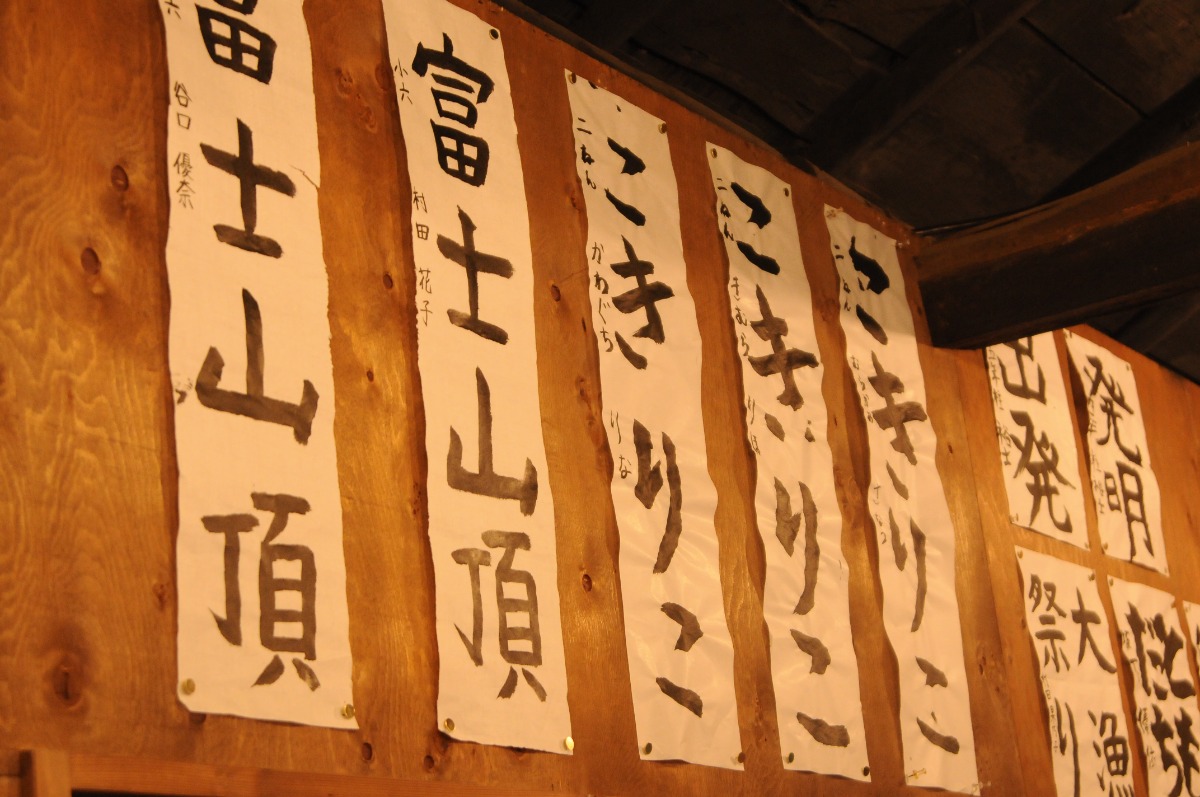 富士山頂
谷口 優奈
富士山頂
小六
村田 花子
こきりこ
二ねん
かわぐち
りな
こきりこ
二ねん
きむら
りほ
こきりこ
二ねん
出発
発明
大漁
祭り